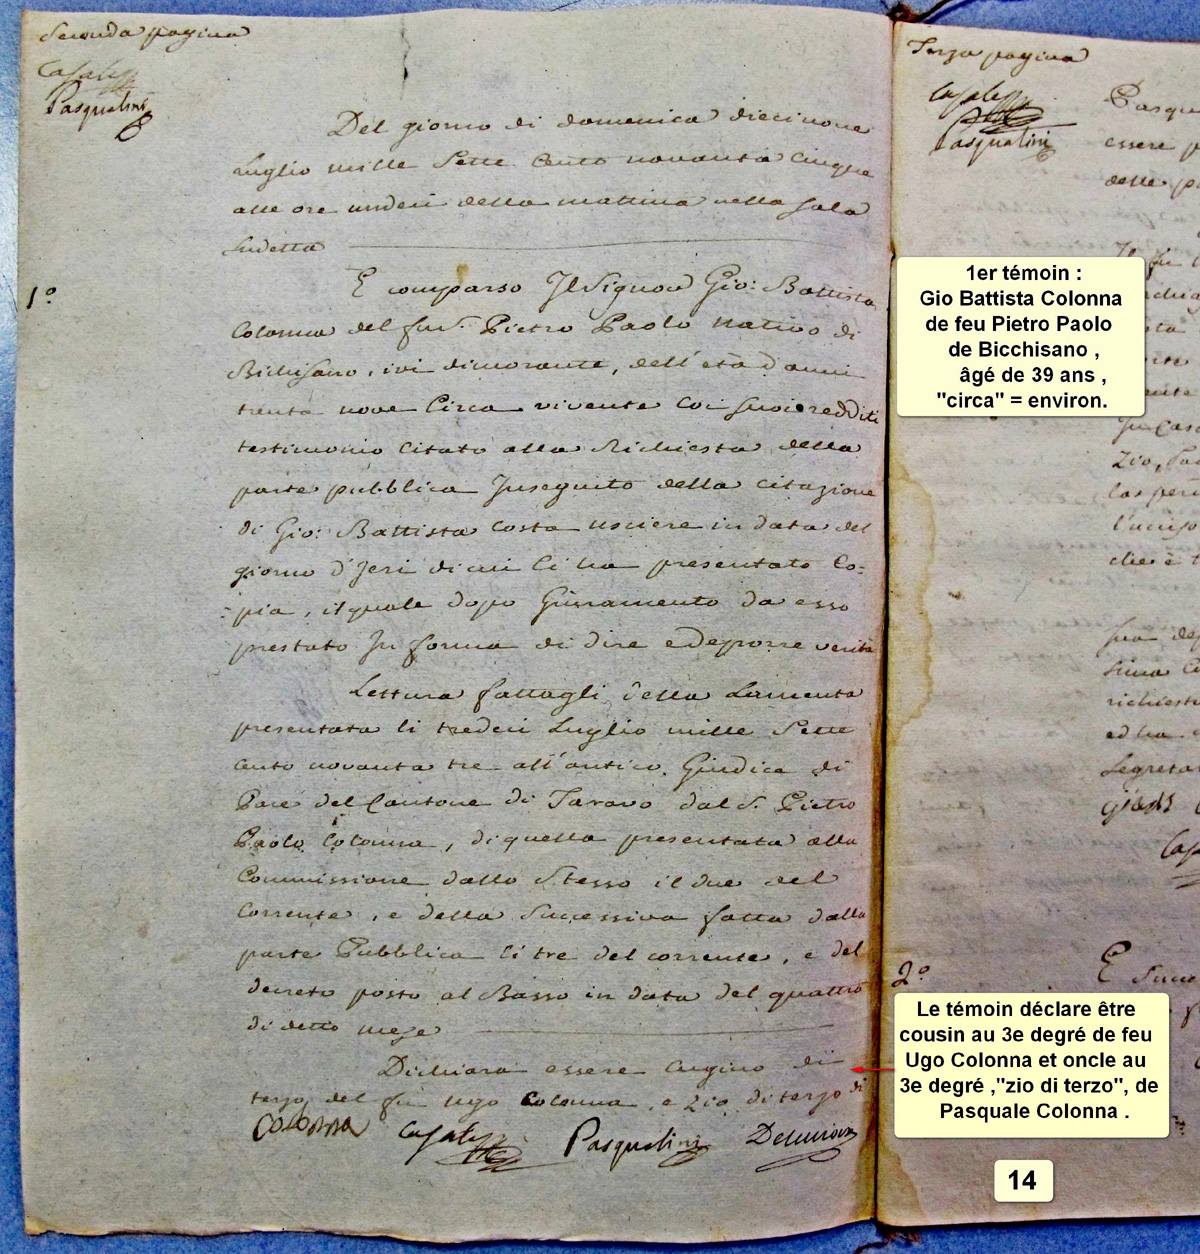 Seconda pagina
Casale
Pasqualini
Del giorno di domenica diecinove
Luglio mille Sette Cento novanta Cinque
alle ore undeci della mattina nella Sala
sudetta
1°
È comparso Il Signor Gio: Battista
Colonna del fu S. Pietro Paolo nativo di
Bichisano, ivi dimorante, dell'età d'anni
trenta nove Circa vivente Coi suoi redditi
testimonio Citato alla Richiesta della
parte pubblica Inseguito della Citazione
di Gio: Battista Costa usciere in data del
giorno d'Jeri di cui Ci ha presentato Co=
=pia, il quale dopo Giuramento da esso
prestato In forma di dire e deporre verità
Lettura fattagli della Lamenta
presentata li tredeci Luglio mille Sette
Cento novanta tre all'antico Giudice di
Pace del Cantone di Taravo dal S. Pietro
Paolo Colonna, di quella presentata alla
Commissione dallo Stesso il due del
Corrente, e della Successiva fatta dalla
parte Pubblica li tre del corrente, e del
decreto posto al Basso in data del quattro
di detto mese
Dichiara essere Cugino di
terzo del fu Ugo Colonna, e Zio di terzo di
Colonna Casale Pasqualini
Terza pagina
Casale
Pasqualini
Pasqu
essere p
delle p
1er témoin :
Gio Battista Colonna
de feu Pietro Paolo
de Bicchisano ,
âgé de 39 ans ,
"circa" = environ.
Zio, Pa
l'accuso
che è
sua de
richiest
ed ha
Segretar
2°
È Succ
Le témoin déclare être
cousin au 3e degré de feu
Ugo Colonna et oncle au
3e degré ,"zio di terzo", de
Pasquale Colonna .
14